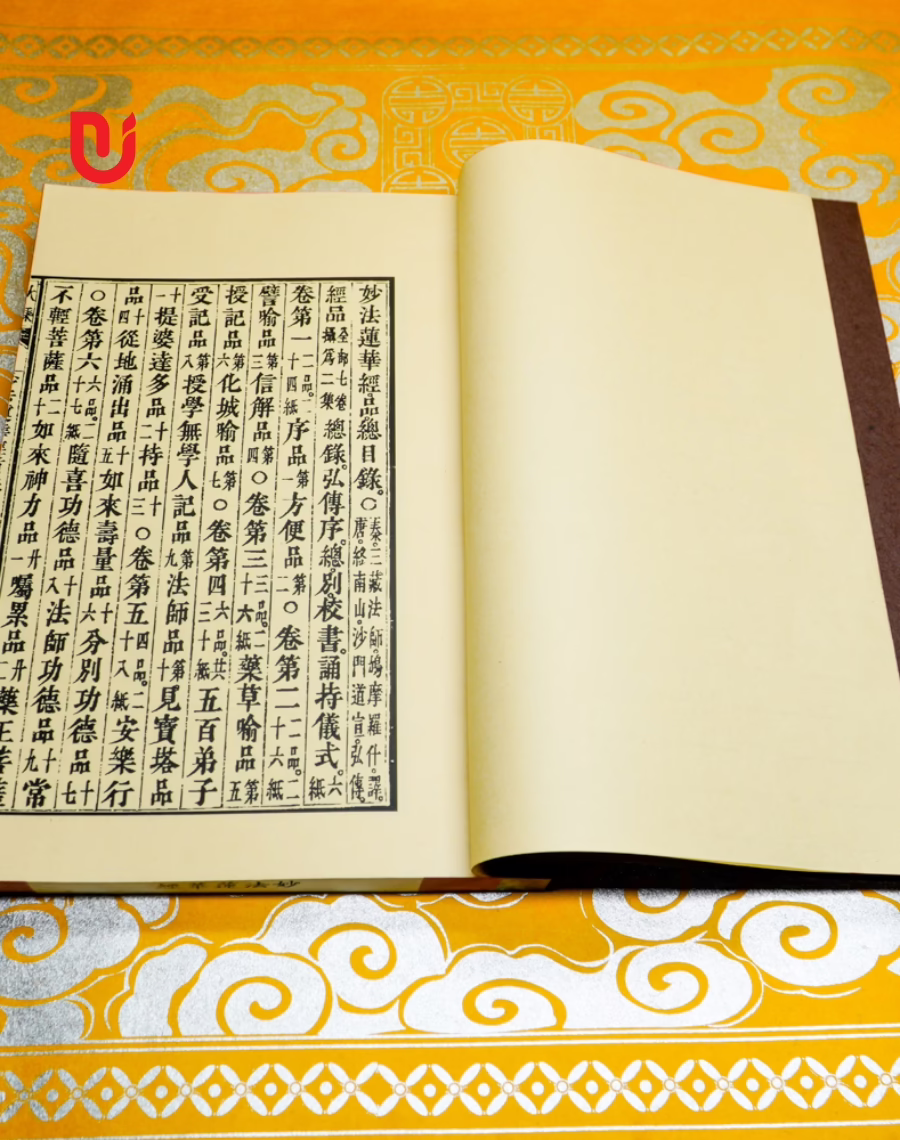 妙法蓮華經品總目錄。○秦。三藏法師鳩摩羅什。譯。唐。終南山。沙門道宣。弘傳。
經品全部七卷攝爲二集總錄。弘傳序。總別。校書。誦持儀式。六紙
卷第一二品。二十四紙序品第一方便品第二○卷第二二品。二十六紙
譬喻品第三信解品第四○卷第三三品。二十六紙藥草喻品第五
授記品第六化城喻品第七○卷第四六品。共三十紙五百弟子
受記品第八授學無學人記品第九法師品第十見寶塔品
十一提婆達多品十二持品十三○卷第五四品。二十八紙安樂行
品十四從地涌出品十五如來壽量品十六分別功德品十七
○卷第六六品。二十七紙隨喜功德品十八法師功德品十九常
不輕菩薩品二十如來神力品廿一囑累品廿二藥王菩薩